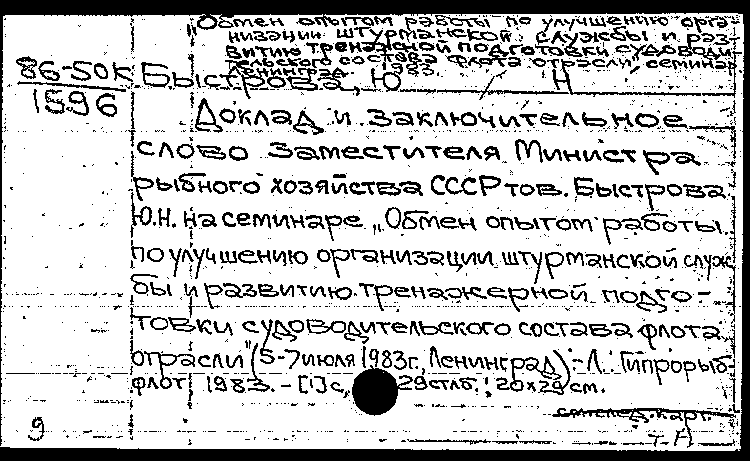 „Обмен опытом работы по улучшению орга-
низации штурманской службы и раз-
витию тренажной подготовки судоводи-
тельского состава флота отрасли", семинар
Ленинград. 1983.
86-50к Быстрова, Ю Н
1596
Доклад и заключительное
слово заместителя Министра
рыбного хозяйства СССР тов. Быстрова
Ю.Н. на семинаре „Обмен опытом работы
по улучшению организации штурманской служ
бы и развитию тренажерной подго-
товки судоводительского состава флота
отрасли" (5-7 июля 1983г., Ленинград).-Л.: Гипрорыб-
флот, 1983. - [1] с., 29 стлб.; 20×29 см.
см.след.карт.
9
Т-П